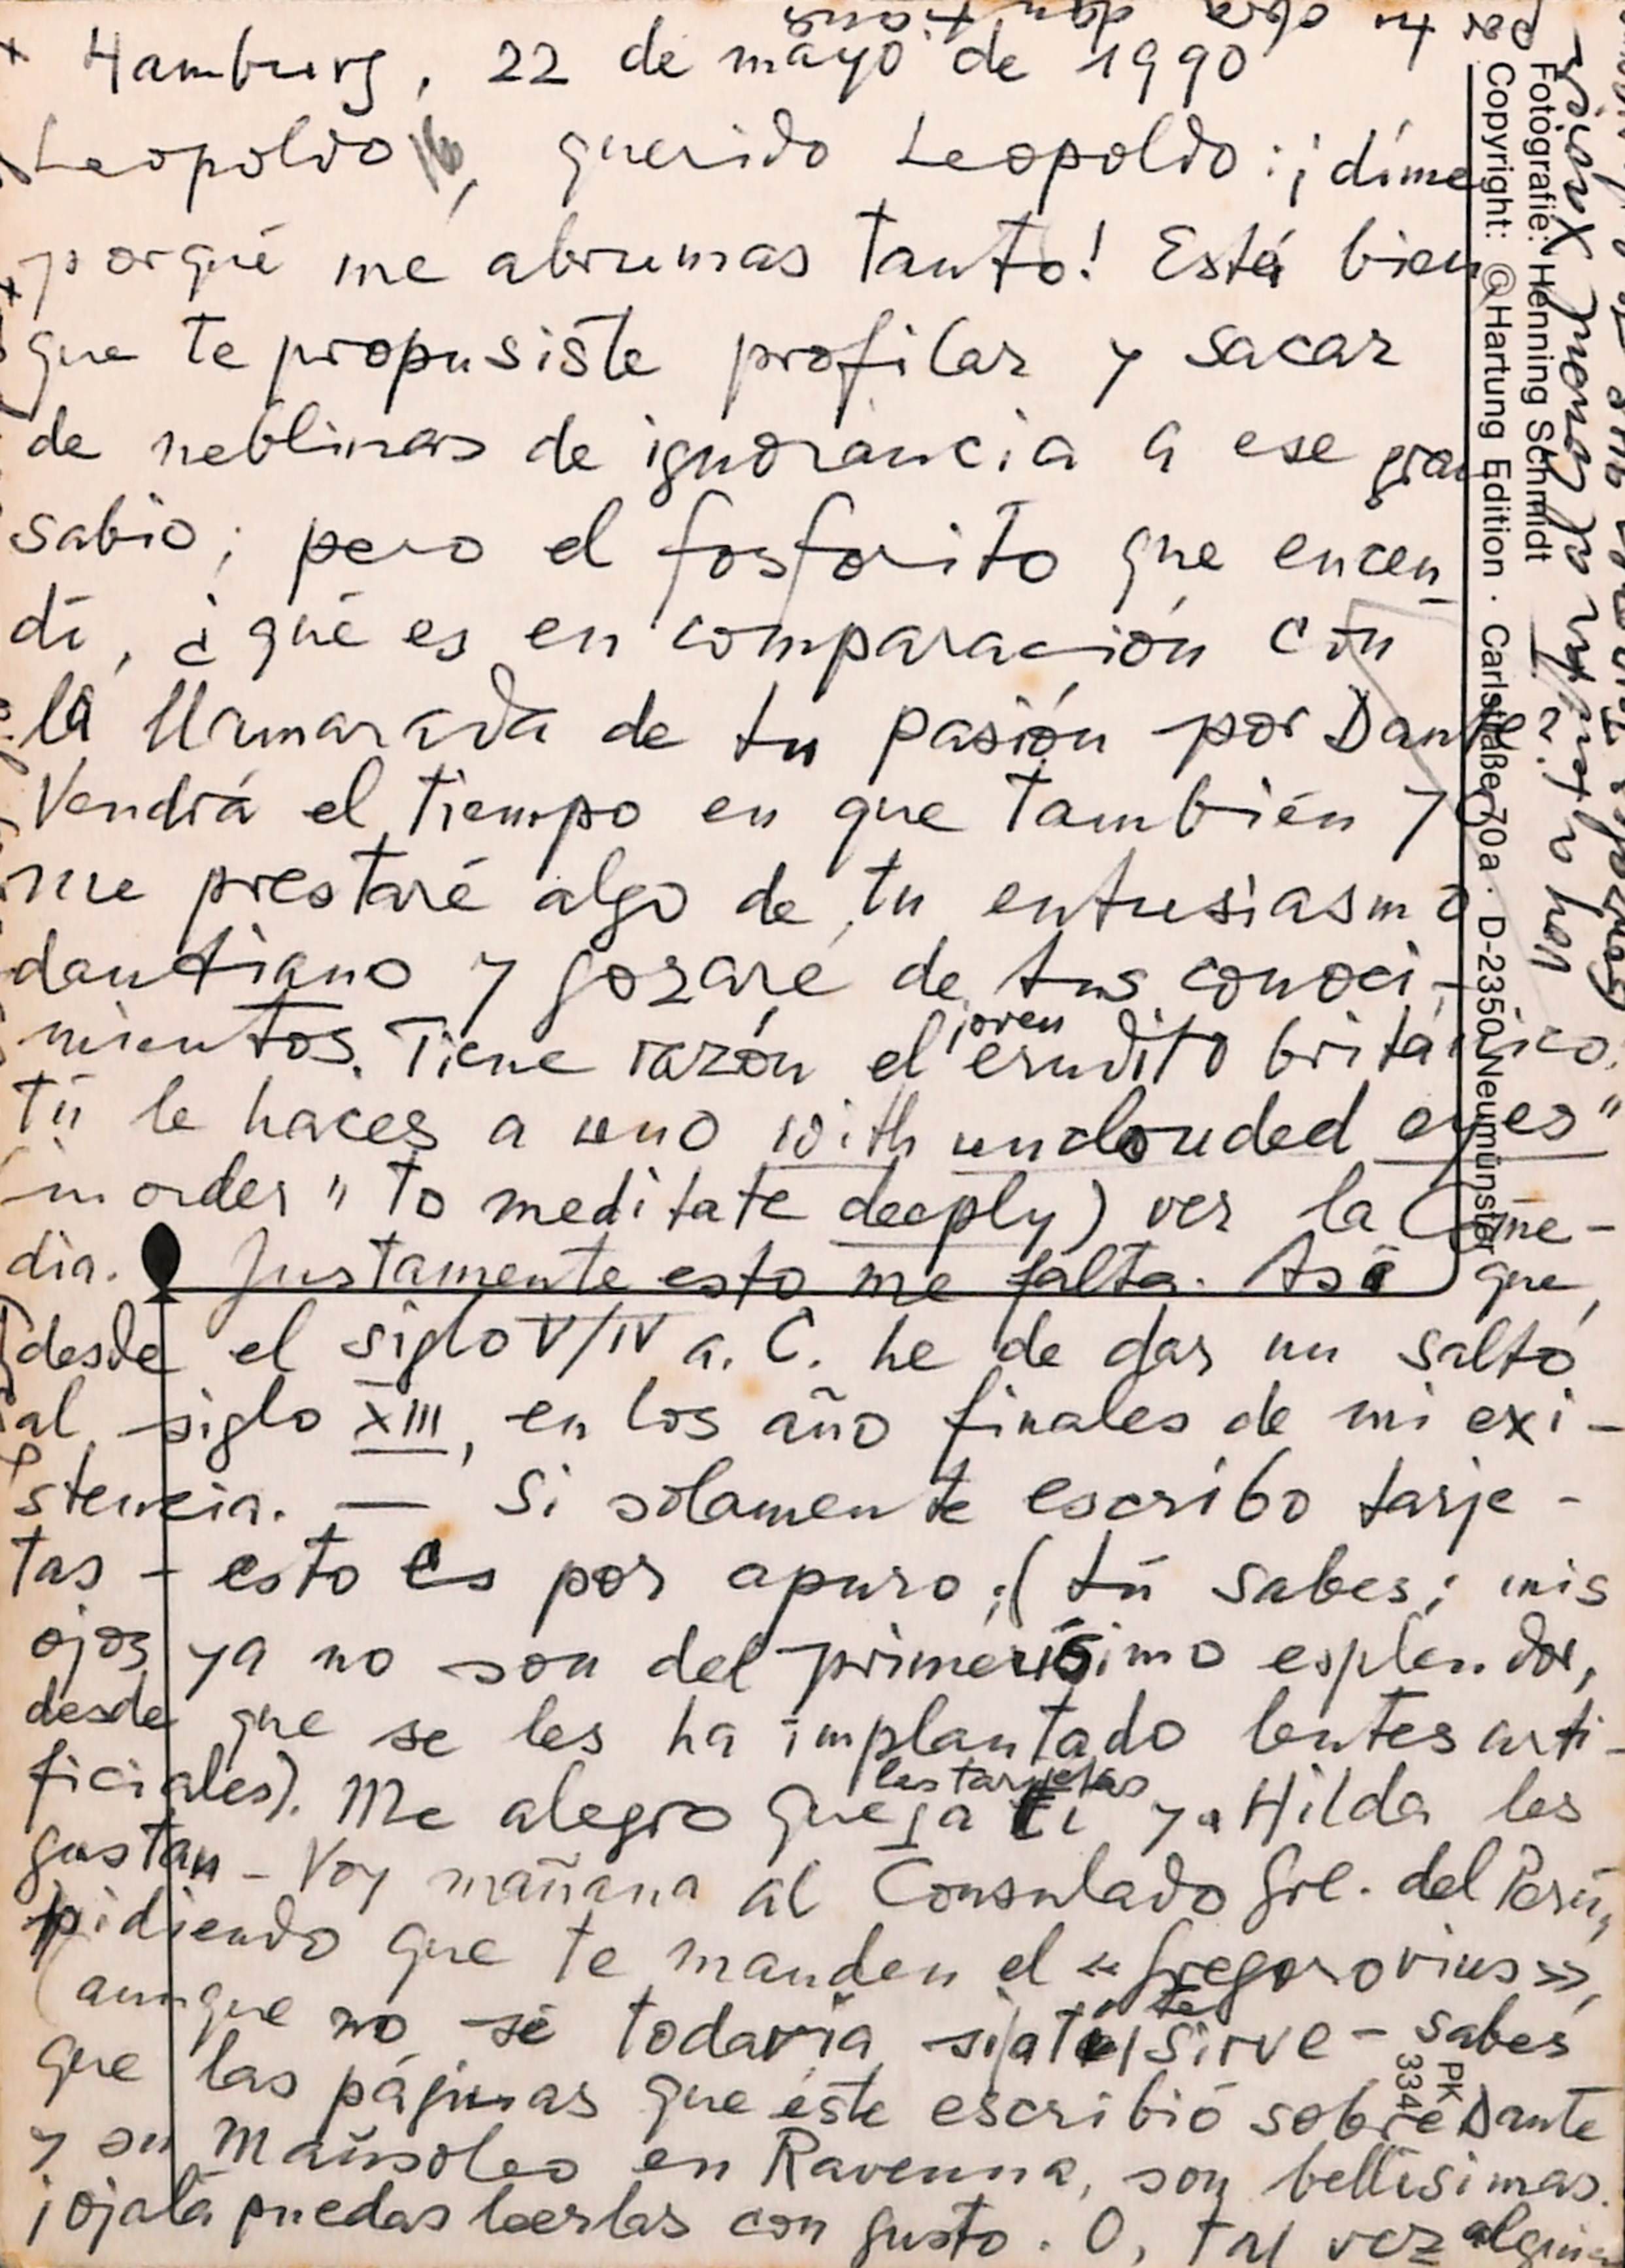 Hamburg, 22 de mayo de 1990
Leopoldo, querido Leopoldo: ¡díme
porqué me abrumas tanto! Está bien
que te propusiste profilar y sacar
de neblinas de ignorancia a ese gran
sabio; pero el fosforito que encen-
dí, ¿qué es en comparación con
la llamarada de tu pasión por Dante
Vendrá el tiempo en que también yo
me prestaré algo de tu entusiasmo
dantiano y gozaré de tus conoci-
mientos. Tiene razón el joven erudito británico.
Tú le haces a uno with unclouded eyes"
in order "to meditate deeply) ver la Come-
dia. Justamente esto me falta. Así que,
desde el siglo V/IV a. C. he de dar un salto
al siglo XIII, en los año finales de mi exi-
stencia. — Si solamente escribo tarje-
tas - esto es por apuro; (tú sabes; mis
ojos ya no son del primerísimo esplendor,
desde que se les ha implantado lentes arti-
ficiales). Me alegro que las tarjetas a ti y a Hilda les
gustan - Voy mañana al Consulado Grl. del Perú,
pidiendo que te manden el «Gregorovius»,
(aunque no sé todavía si a ti te sirve - sabes
que las páginas que éste escribió sobre Dante
y su Mausoleo en Ravenna, son bellísimas.
¡Ojalá puedas leerlas con gusto. O, tal vez
por tu obra
Fotografie: Henning Schmidt
Copyright: © Hartung Edition · Carlstraße 70a · D-2350 Neumünster
PK
334